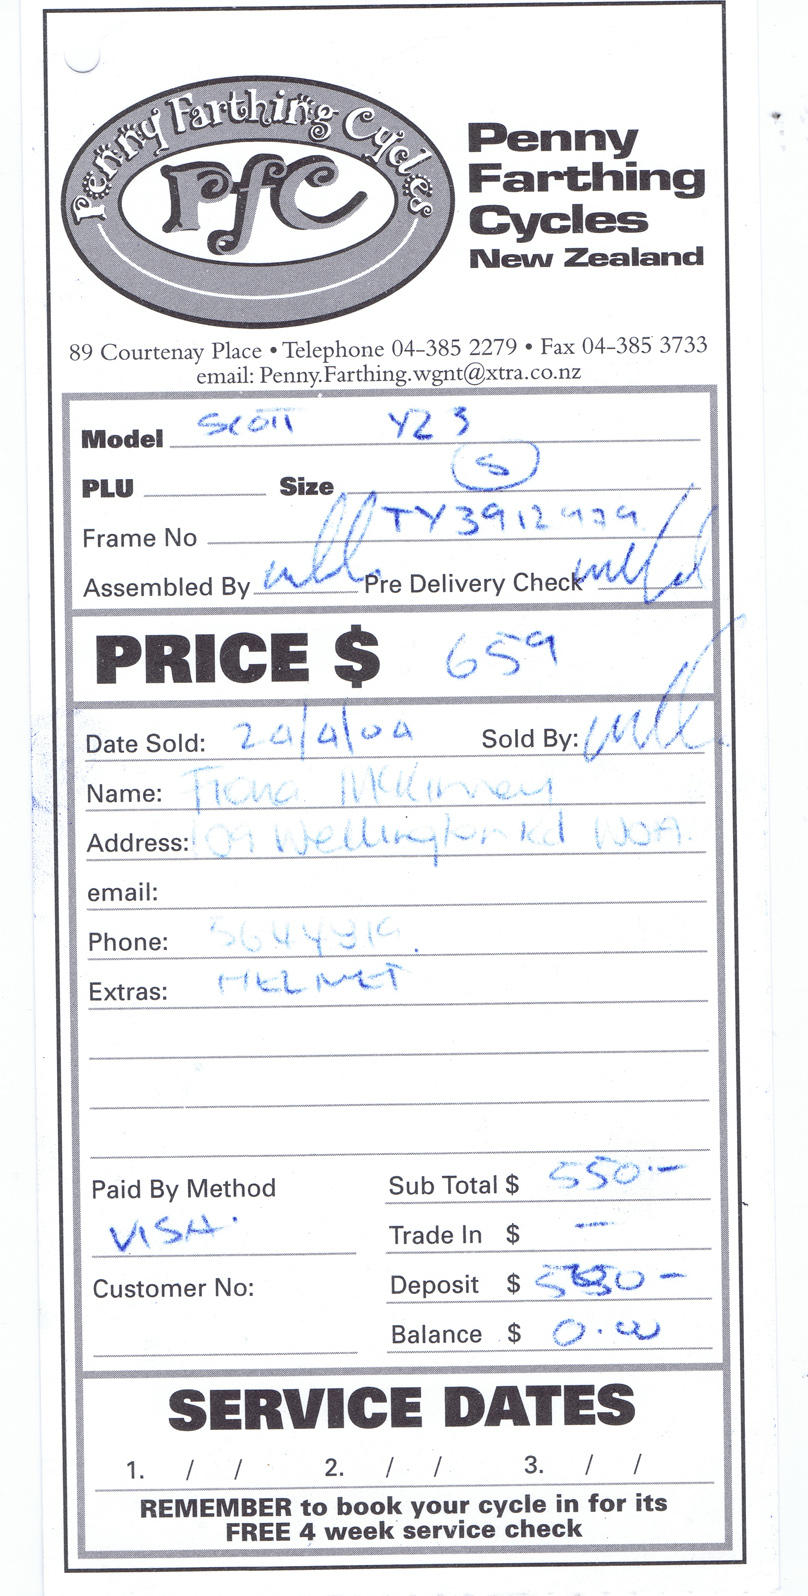 Penny Farthing Cycles
PfC
Penny
Farthing
Cycles
New Zealand
89 Courtenay Place • Telephone 04-385 2279 • Fax 04-385 3733
email: Penny.Farthing.wgnt@xtra.co.nz
Model SCOTT YZ 3
PLU Size S
Frame No TY3912979
Assembled By Pre Delivery Check
PRICE $ 659
Date Sold: 24/4/04 Sold By:
Name: Fiona McKinney
Address: 109 Wellington Rd WUA.
email:
Phone:
Extras: HELMET
Paid By Method Sub Total $ 550.-
VISA. Trade In $ -
Customer No: Deposit $ 550 -
Balance $ 0.00
SERVICE DATES
1. / / 2. / / 3. / /
REMEMBER to book your cycle in for its
FREE 4 week service check